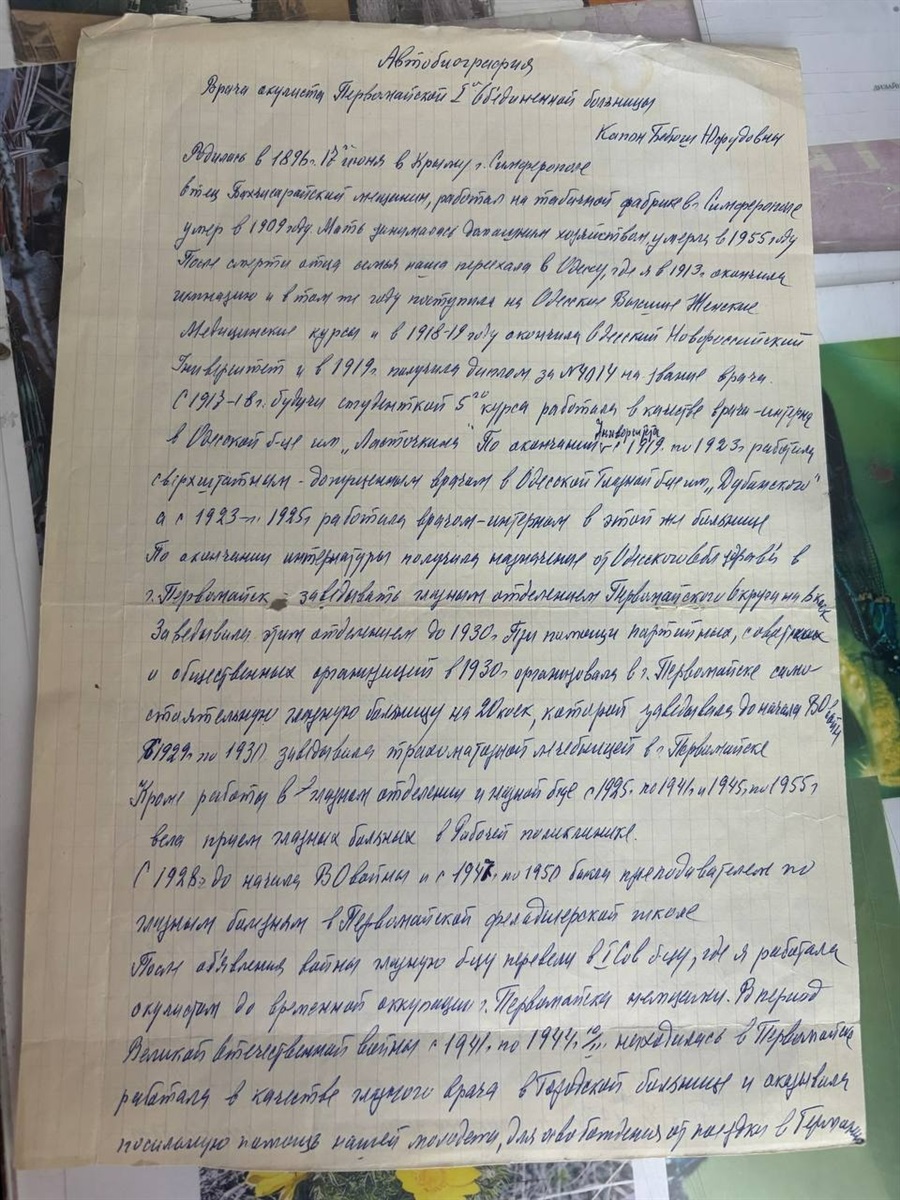 Автобиография
Врача окулиста Первомайской I ой Об'единенной больницы
Капон Юфудовны
Родилась в 1896 г. 17 го июня в Крыму г. Симферополе
Отец Бахчисарайский мещанин, работал на табачной фабрике в г. Симферополе
умер в 1909 году. Мать занималась домашним хозяйством, умерла в 1955 году
После смерти отца семья наша переехала в Одессу, где я в 1913 г. окончила
гимназию и в том же году поступила на Одесские Высшие Женские
Медицинские курсы и в 1918-19 году окончила Одесский Новороссийский
Университет и в 1919 г. получила диплом за № на звание врача.
С 1917-18 г. будучи студенткой 5 го курса работала в качестве врача-интерна
в Одесской б-це им. „Ласточкина" По окончании Университета с 1919 г. по 1923 г. работала
сверхштатным - допущенным врачом в Одесской Глазной б-це им „Дубинского"
а с 1923 г. - 1925 г. работала врачом-интерном в этой же больнице
По окончании интернатуры получила назначение от Одесского облздрав в
г. Первомайск - заведывать глазным отделением Первомайского Округа на коек
Заведывала этим отделением до 1930 г. При помощи партийных, советских
и общественных организаций в 1930 г. организовала в г. Первомайске само-
стоятельную глазную больницу на 20 коек, которой заведывала до начала ВО войны
С 1929 г. по 1930 заведывала трахоматозной лечебницей в г. Первомайске
Кроме работы в глазном отделении и глазной б-це с 1925 г. по 1941 г. и 1945 г. по 1955 г
вела прием глазных больных в Рабочей поликлинике.
С 1928 г. до начала ВО войны и с 1947 г. по 1950 была преподавателем по
глазным болезням в Первомайской фельдшерской школе
После объявления войны глазную б-цу перевели в I Сов б-цу, где я работала
окулистом до временной оккупации г. Первомайска немцами. В период
Великой Отечественной войны с 1941 г. по 1944 г. находилась в Первомайске
работала в качестве глазного врача в Городской больнице и оказывала
посильную помощь нашей молодежи, для освобождения от поездки в Германию